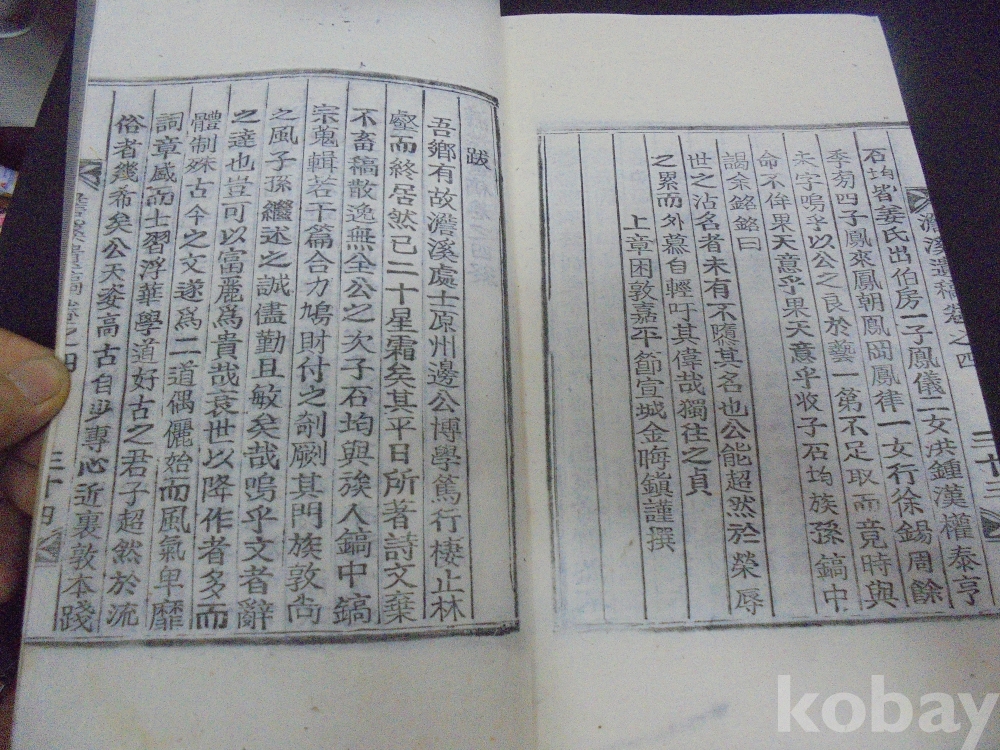 澹溪遺稿卷之四
三十三
洪鍾漢權泰亨
石均皆姜氏出伯房一子鳳儀一女
季房四子鳳來鳳朝鳳岡鳳律一女行徐錫周餘
未字嗚乎以公之良於藝一第不足取而竟時與
命不侔果天意乎果天意乎收子石均族孫鎬中
謁余銘銘曰
世之沾名者未有不隳其名也公能超然於榮辱
之累而外慕自輕吁其偉哉獨往之貞
上章困敦嘉平節宣城金晦鎮謹撰
跋
吾鄉有故澹溪處士原州邊公博學篤行棲止林
壑而終居然已二十星霜矣其平日所著詩文棄
不畜稿散逸無全公之次子石均與族人鎬中鎬
宗蒐輯若干篇合力鳩財付之剞劂其門族敦尚
之風子孫繼述之誠盡勤且敏矣哉嗚乎文者辭
之達也豈可以富麗爲貴哉衰世以降作者多而
體制殊古今之文遂爲二道偶儷始而風氣卑靡
詞章盛而士習浮華學道好古之君子超然於流
俗者幾希矣公天姿高古自少專心近裏敦本踐
之四
三十四
kobay